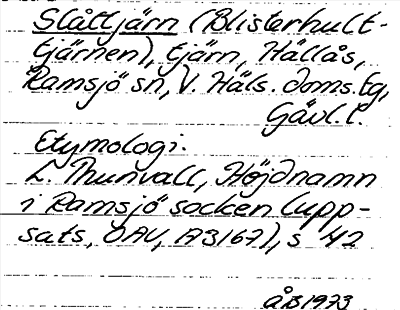 Slåttjärn (Blisterhult-
tjärnen), tjärn, Hällås,
Ramsjö sn, V. Häls. doms. tg,
Gävl. l.
Etymologi.
L. Thunvall, Höjdnamn
i Ramsjö socken (upp-
sats, OAU, A3167), s 42
ÅB 1973